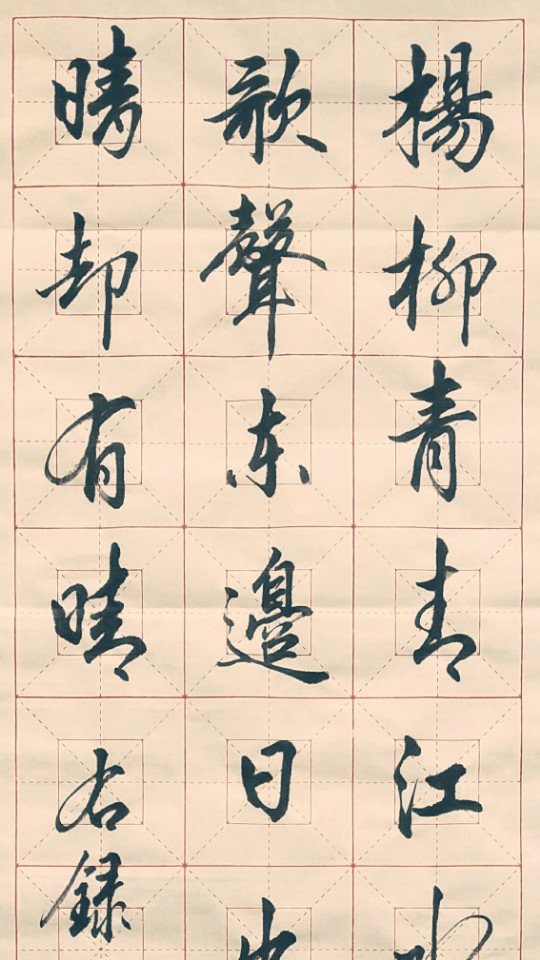 楊柳青青江水
歌聲东邊日出
晴却有晴右録